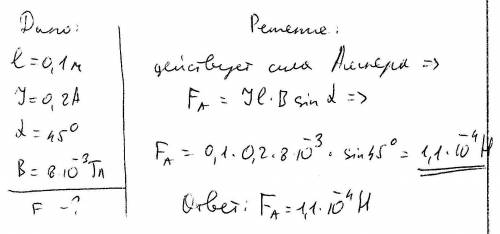 Дано:
l = 0,1 м
I = 0,2 А
α = 45°
B = 8·10⁻³ Тл
F - ?
Решение:
действует сила Ампера =>
Fₐ = Il·B sin α =>
Fₐ = 0,1·0,2·8·10⁻³ · sin 45° = 1,1·10⁻⁴ Н
Ответ: Fₐ = 1,1·10⁻⁴ Н